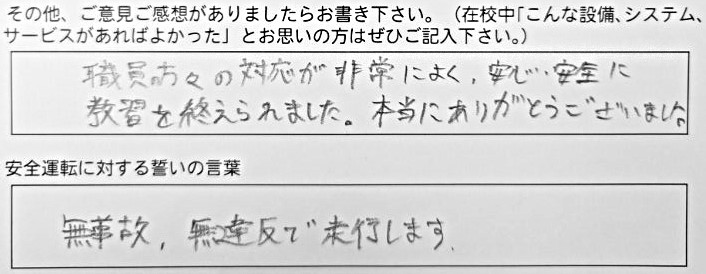 その他、ご意見ご感想がありましたらお書き下さい。（在校中「こんな設備、システム、
サービスがあればよかった」とお思いの方はぜひご記入下さい。）
職員の方々の対応が非常によく，安心・安全に
教習を終えられました。本当にありがとうございました。
安全運転に対する誓いの言葉
無事故，無違反で走行します．